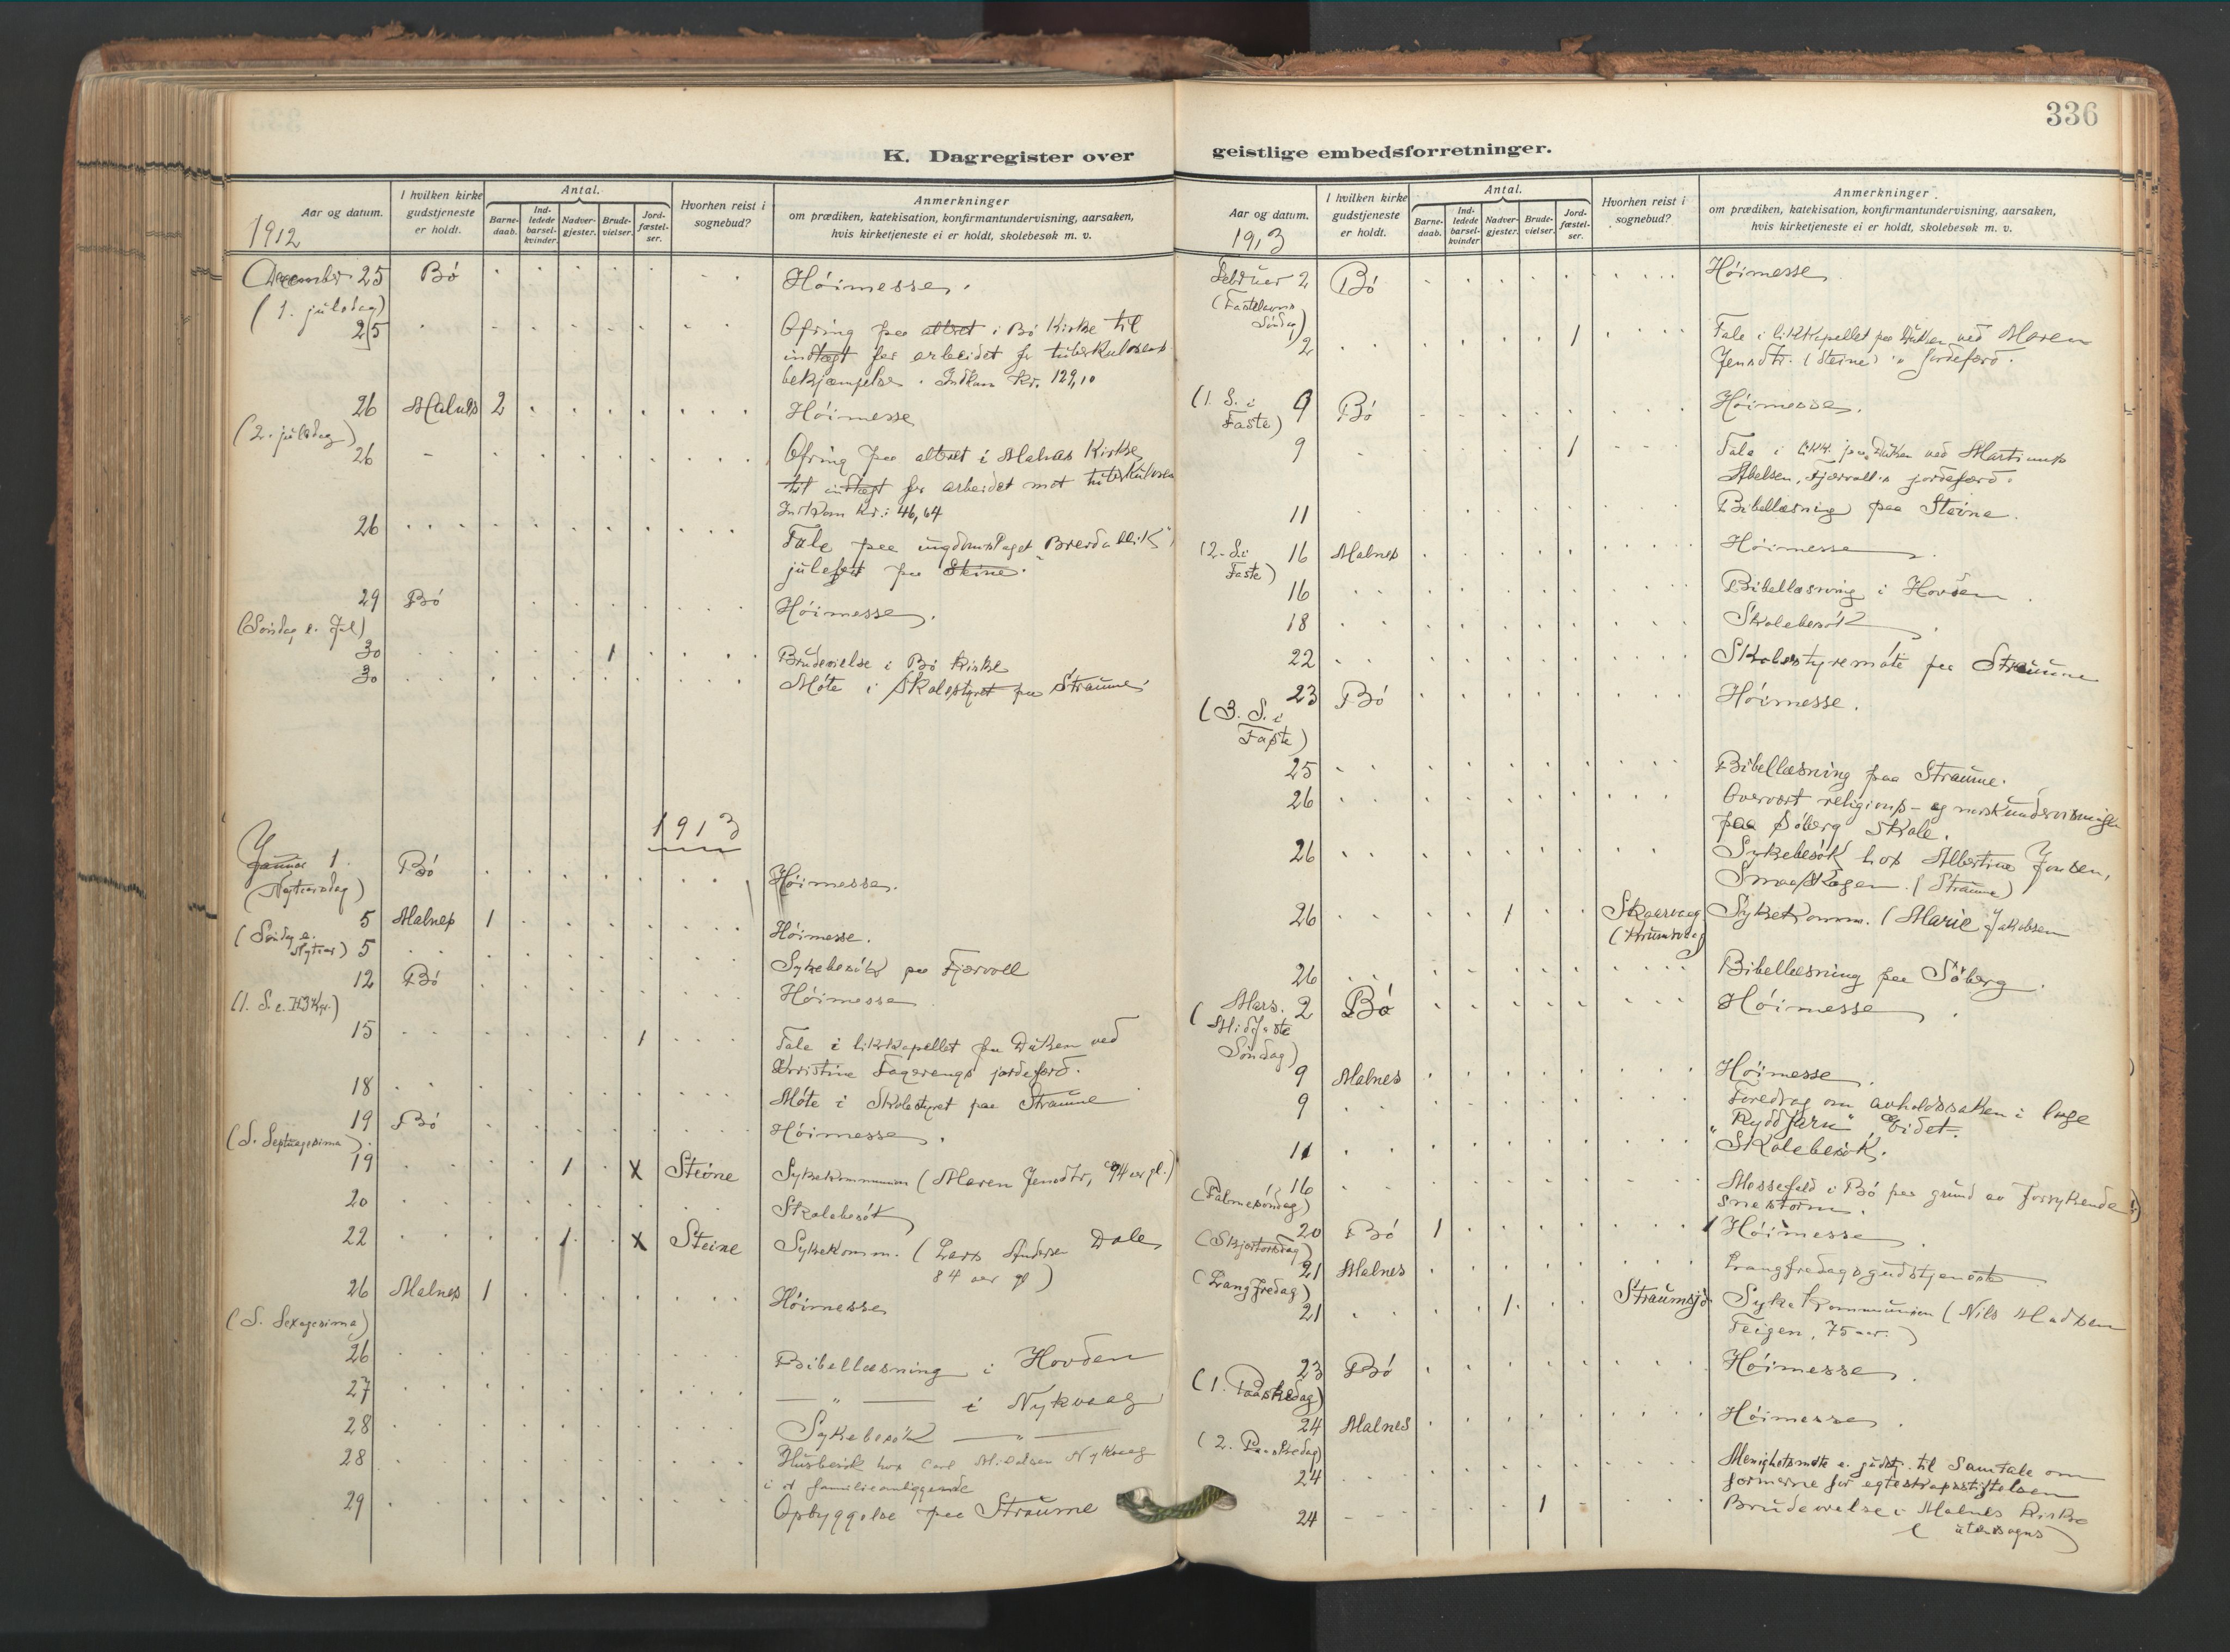 336
K. Dagregister over geistlige embedsforretninger.
Aar og datum.
I hvilken kirke gudstjeneste er holdt.
Antal.
Barnedaab.
Indledede barselkvinder.
Nadvergjester.
Brudevielser.
Jordfæstelser.
Hvorhen reist i sognebud?
Anmerkninger
om prædiken, katekisation, konfirmantundervisning, aarsaken,
hvis kirketjeneste ei er holdt, skolebesøk m. v.
1912
December 25 Bö Höimesse.
(1. juledag)
25 Ofring paa altret i Bö Kirke til
indtægt for arbeidet for tuberkulosens
bekjæmpelse. Indkom Kr. 129,10
26 Malnes 2 Höimesse
(2. juledag)
26 Ofring paa altret i Malnes Kirke
til indtægt for arbeidet mot tuberkulosen
Indkom Kr: 46,64
26 Tale paa ungdomslaget "Breidablik"s
julefest paa Steine.
29 Bö Höimesse.
(Söndag e. Jul)
30 1 Brudevielse i Bö Kirke
30 Möte i Skolestyret paa Straume
1913
Januar 1. Bö Höimesse.
(Nytaarsdag)
5 Malnes 1 Höimesse.
(Söndag e. Nytaar)
5 Sykebesök paa Fjærvoll
12 Bö Höimesse
(1. S. e. H3Kgr.)
15 1 Tale i likkapellet paa Duken ved
Kristine Fagerengs jordefærd.
18 Möte i Skolestyret paa Straume
19 Bö Höimesse.
(S. Septuagesima)
19 1 X Steine Sykekommunion (Maren Jensdtr, 94 aar gl.)
20 Skolebesök
22 1 X Steine Sykekomm. (Lars Andersen Dale
84 aar gl)
26 Malnes 1 Höimesse
(S. Sexagesima)
26 Bibellæsning i Hovden
27 — " — i Nykvaag
28 Sykebesök — " —
28 Husbesök hos Carl Mikalsen Nykvaag
i et familieanliggende
29 Opbyggelse paa Straume
Aar og datum.
I hvilken kirke gudstjeneste er holdt.
Antal.
Barnedaab.
Indledede barselkvinder
Nadvergjester.
Brudevielser.
Jordfæstelser.
Hvorhen reist i sognebud?
Anmerkninger.
om prædiken, katekisation, konfirmantundervisning, aarsaken,
hvis kirketjeneste ei er holdt, skolebesøk m. v.
1913
Februar 2 Bö Höimesse
(Fastelavns Söndag)
2 1 Tale i likkapellet paa Duken ved Maren
Jensdtr. (Steine)s jordefærd.
(1. S. i Faste) 9 Bö Höimesse.
9 1 Tale i likk. paa Duken ved Martinus
Abelsen, Fjærvoll's jordefærd.
11 Bibellæsning paa Steine.
(2. S. i Faste) 16 Malnes Höimesse.
16 Bibellæsning i Hovden.
18 Skolebesök.
22 Skolestyremöte paa Straume
23 Bö Höimesse.
(3. S. i Faste)
25 Bibellæsning paa Straume.
26 Overvært religions- og norskundervisningen
paa Söberg Skole.
26 Sykebesök hos Albertine Jonsen,
Smaaskogen. (Straume)
26 1 Skaarvaag Sykekomm. (Marie Jakobsen
26 Bibellæsning paa Söberg.
Mars. 2 Bö Höimesse.
(Midfaste Söndag)
9 Malnes Höimesse.
9 Foredrag om avholdssaken i loge
"Rydd Jarn" Eidet.
11 Skolebesök.
16 Messefald i Bö paa grund av forrykende
(Palmesöndag) snestorm.
20 Bö 1 Höimesse.
(Skjærtorsdag)
21 Malnes Langfredagsgudstjeneste
(Langfredag)
21 1 Straumsjö Sykekommunion (Nils Madsen
Teigen, 75 aar.)
23 Bö Höimesse.
(1. Paaskedag)
24 Malnes Höimesse.
(2. Paaskedag)
24 Menighetsmöte e. gudstj. til Samtale om
formerne for egteskapsstiftelsen
24 1 Brudevielse i Malnes Kirke
( utensogns)